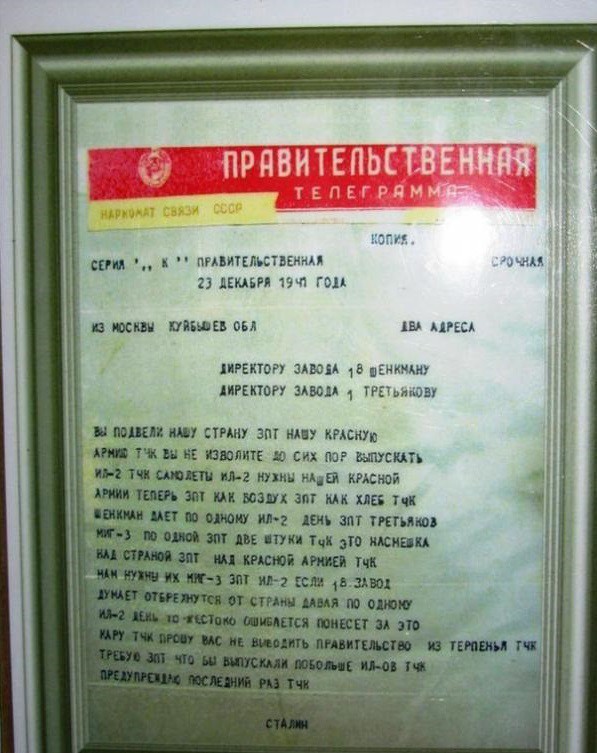 ПРАВИТЕЛЬСТВЕННАЯ
ТЕЛЕГРАММА
НАРКОМАТ СВЯЗИ СССР
КОПИЯ.
СЕРИЯ ",, К '' ПРАВИТЕЛЬСТВЕННАЯ СРОЧНАЯ
23 ДЕКАБРЯ 1941 ГОДА
ИЗ МОСКВЫ КУЙБЫШЕВ ОБЛ ДВА АДРЕСА
ДИРЕКТОРУ ЗАВОДА 18 ШЕНКМАНУ
ДИРЕКТОРУ ЗАВОДА 1 ТРЕТЬЯКОВУ
ВЫ ПОДВЕЛИ НАШУ СТРАНУ ЗПТ НАШУ КРАСНУЮ
АРМИЮ ТЧК ВЫ НЕ ИЗВОЛИТЕ ДО СИХ ПОР ВЫПУСКАТЬ
ИЛ-2 ТЧК САМОЛЕТЫ ИЛ-2 НУЖНЫ НАШЕЙ КРАСНОЙ
АРМИИ ТЕПЕРЬ ЗПТ КАК ВОЗДУХ ЗПТ КАК ХЛЕБ ТЧК
ШЕНКМАН ДАЕТ ПО ОДНОМУ ИЛ-2 ДЕНЬ ЗПТ ТРЕТЬЯКОВ
МИГ-3 ПО ОДНОЙ ЗПТ ДВЕ ШТУКИ ТЧК ЭТО НАСМЕШКА
НАД СТРАНОЙ ЗПТ НАД КРАСНОЙ АРМИЕЙ ТЧК
НАМ НУЖНЫ ИХ МИГ-3 ЗПТ ИЛ-2 ЕСЛИ 18 ЗАВОД
ДУМАЕТ ОТБРЕХНУТСЯ ОТ СТРАНЫ ДАВАЯ ПО ОДНОМУ
ИЛ-2 ДЕНЬ ТО ЖЕСТОКО ОШИБАЕТСЯ ПОНЕСЕТ ЗА ЭТО
КАРУ ТЧК ПРОШУ ВАС НЕ ВЫВОДИТЬ ПРАВИТЕЛЬСТВО ИЗ ТЕРПЕНЬЯ ТЧК
ТРЕБУЮ ЗПТ ЧТО БЫ ВЫПУСКАЛИ ПОБОЛЬШЕ ИЛ-ОВ ТЧК
ПРЕДУПРЕЖДАЮ ПОСЛЕДНИЙ РАЗ ТЧК
СТАЛИН